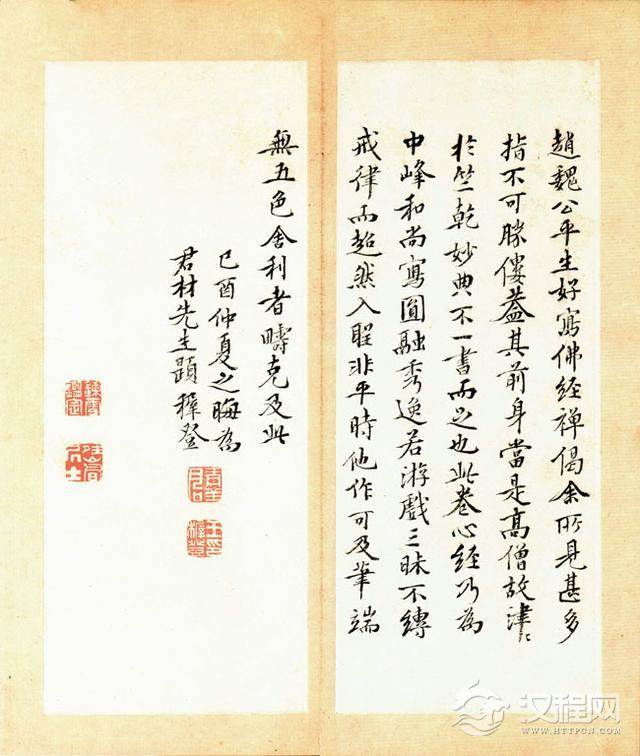 趙魏公平生好寫佛經禅偈余所見甚多
指不可勝僂葢其前身當是髙僧故津〻
於竺乾妙典不一書而足也此卷心經乃為
中峰和尚寫圓融秀逸若游戲三昧不縛
戒律而超然入聖非平時他作可及筆端
無五色舍利者疇克及此
己酉仲夏之晦為
君材先生題穉登
汉程网
WWW.HTTPCN.COM